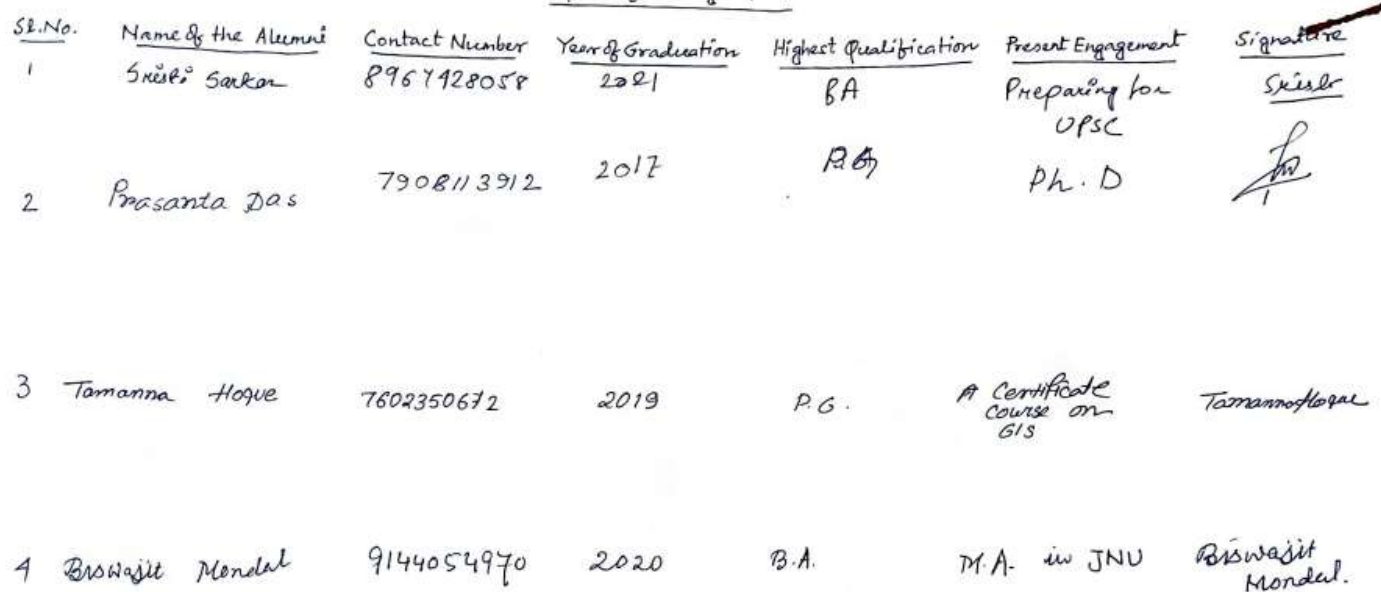 Sl.No. Name of the Alumni Contact Number Year of Graduation Highest Qualification Present Engagement Signature
1 Sristi Sarkar 8967428058 2021 BA Preparing for UPSC Sristi
2 Prasanta Das 7908113912 2017 P.G Ph.D
3 Tamanna Hoque 7602350672 2019 P.G. A Certificate course on GIS Tamanna Hoque
4 Biswajit Mondal 9144054970 2020 B.A. M.A. in JNU Biswajit Mondal.